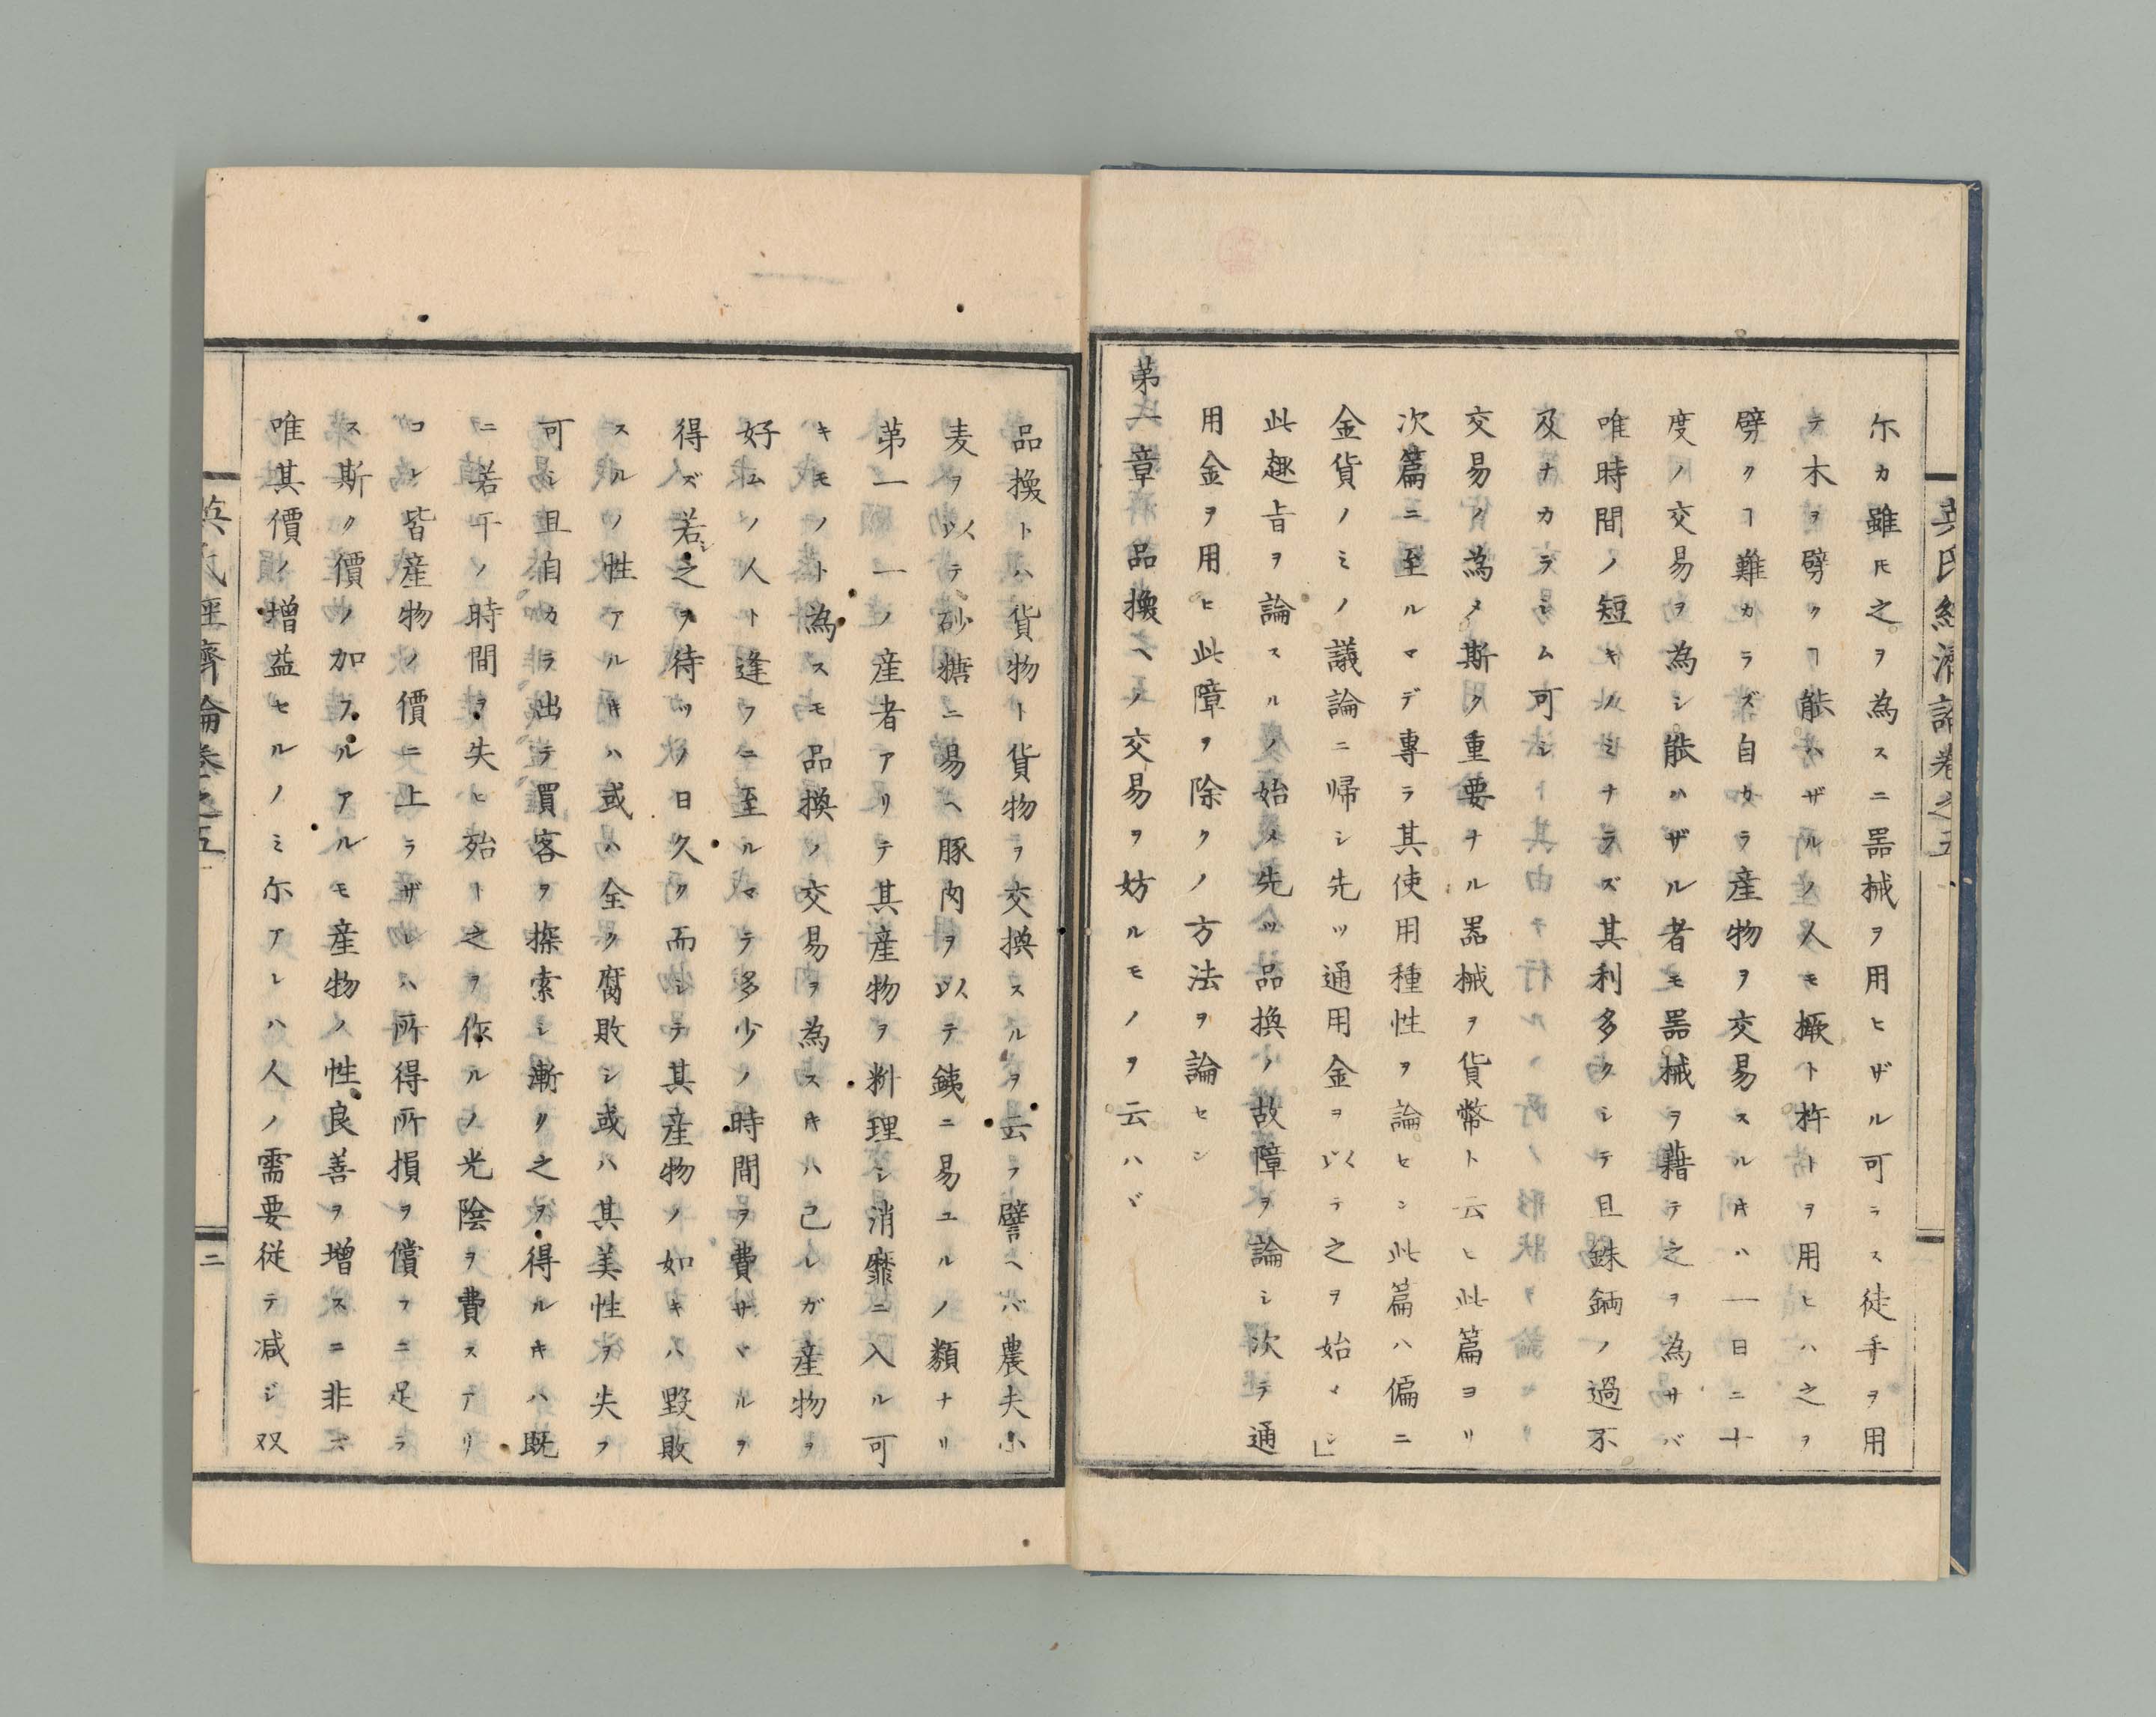 英氏經濟論卷之五
尓カ雖𪜈之ヲ為スニ噐械ヲ用ヒザル可ラス徒手ヲ用
テ木ヲ劈クヿ能ハザルノ人モ橛ト杵トヲ用ヒハ之ヲ
劈クヿ難カラズ自カラ産物ヲ交易スルキハ一日ニ十
度ノ交易ヲ為シ能ハザル者モ噐械ヲ藉テ之ヲ為サバ
唯時間ノ短キノミナラズ其利多クシテ且銖錙ノ過不
及ナカラシム可シ
交易ノ為メ斯ク重要ナル噐械ヲ貨幣ト云ヒ此篇ヨリ
次篇ニ至ルマデ專ラ其使用種性ヲ論セン此篇ハ偏ニ
金貨ノミノ議論ニ帰シ先ッ通用金ヲ以テ之ヲ始マシ」
此趣旨ヲ論スルノ始メ先ッ品換ノ故障ヲ論シ次テ通
用金ヲ用ヒ此障ヲ除クノ方法ヲ論セン
第一章品換ヘノ交易ヲ妨ルモノヲ云ハヾ
品換トハ貨物ト貨物ヲ交換スルヲ云フ譬ヘバ農夫小
麦ヲ以テ砂糖ニ易ヘ豚肉ヲ以テ銕ニ易ユルノ類ナリ
第一一ノ産者アリテ其産物ヲ料理シ消靡ニ入ル可
キモノト為スモ品換ノ交易ヲ為スキハ己レガ産物ヲ
好ムノ人ト逢フニ至ルマテ多少ノ時間ヲ費サヾルヲ
得ズ若シ之ヲ待ツノ日久ク而シテ其産物ノ如キハ毀敗
スルノ性アルキハ或ハ全ク腐敗シ或ハ其美性ヲ失フ
可シ且自カラ出テ買客ヲ探索シ漸ク之ヲ得ルキハ既
ニ若干ノ時間ヲ失ヒ殆ト之ヲ作ルノ光陰ヲ費スアリ
コレ皆産物ノ價ニ上ラザレハ所得所損ヲ償フニ足ラ
ス斯ク價ノ加フルアルモ産物ノ性良善ヲ増スニ非ス
唯其價ノ増益セルノミ尓アレハ人ノ需要従テ减ジ双
英氏經濟論卷之五
二